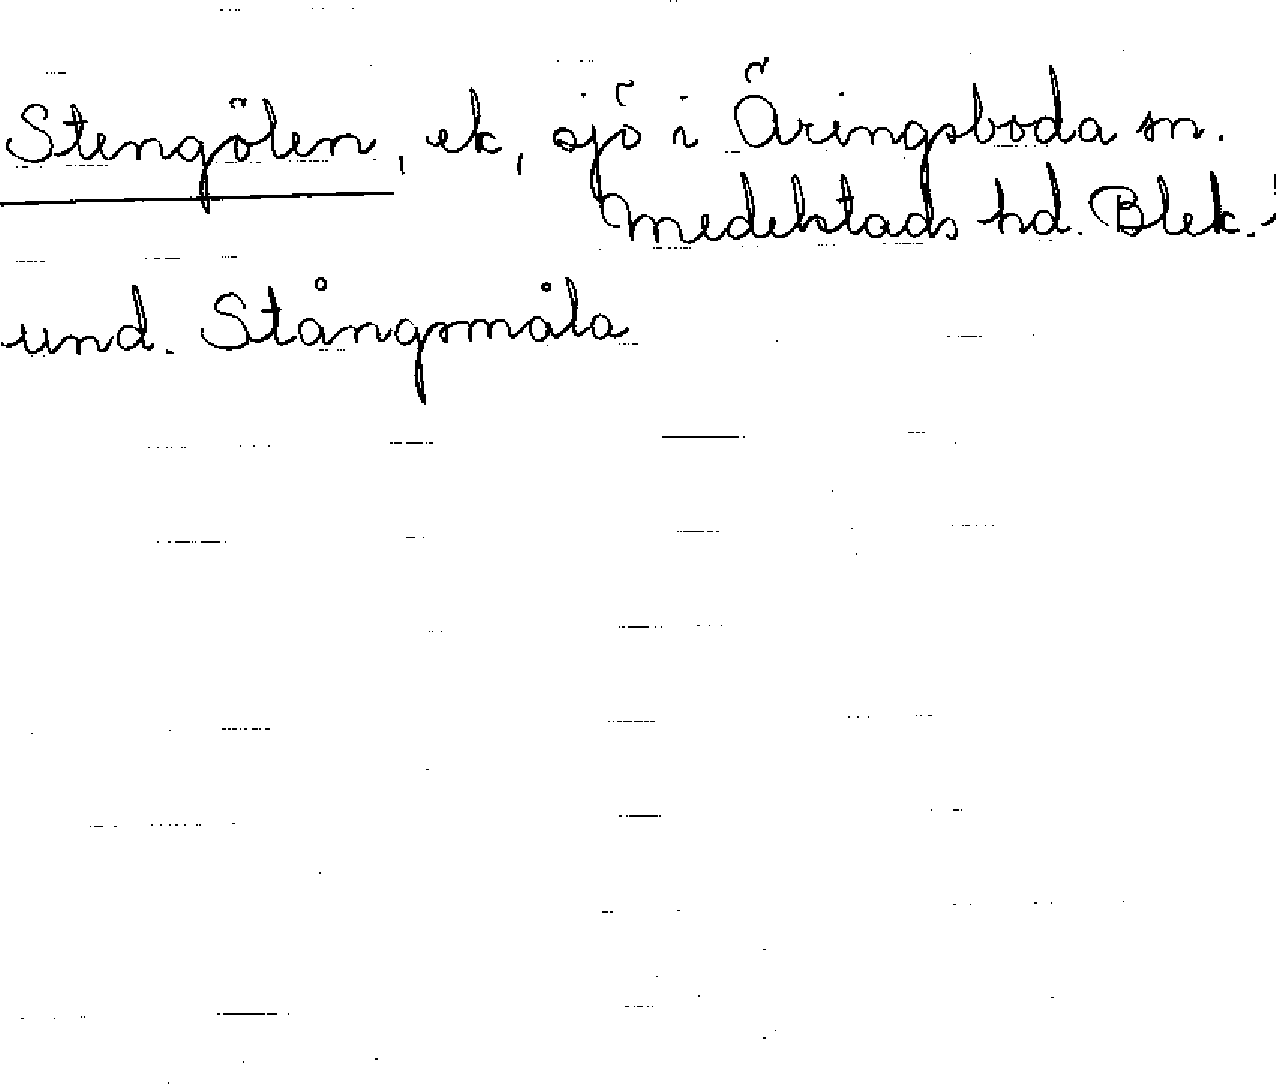 Stengölen, ek, sjö i Äringsboda sn.
Medelstads hd. Blek.
und. Stångsmåla